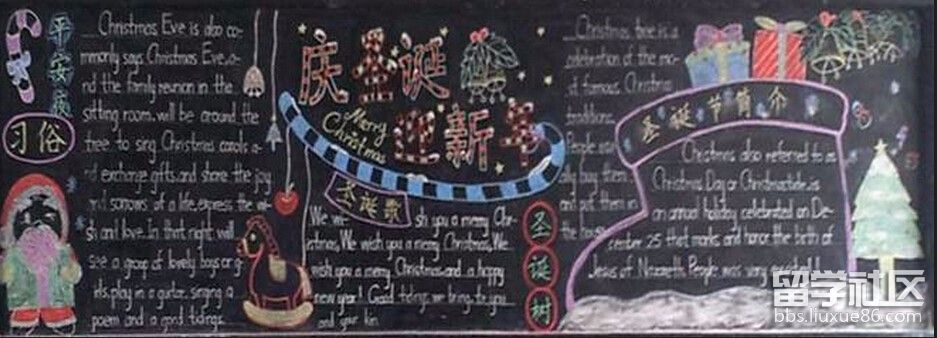 平安夜
习俗
Christmas Eve is also co-
mmonly says Christmas Eve, a-
nd the family reunion in the
sitting room. will be around the
tree to sing Christmas carols a-
nd exchange gifts, and share the joy
and sorrows of a life, express the wi-
sh and love. In that night will
see a group of lovely boys or gi-
rls, play in a guitar, singing a
poem and a good tidings
庆圣诞
迎新年
Merry
Christmas
圣诞歌
We wi- sh you a merry Chr-
istmas, We wish you a merry Christmas, We
wish you a merry Christmas and a happy
new year! Good tidings we bring, to you
and your kin
圣诞树
Christmas tree is a
celebration of the mo-
st famous Christmas
traditions.
People usu-
ally buy them
and put them in
the house
圣诞节简介
Christmas also referred to as
Christmas Day or Christmastide, is
an annual holiday celebrated on De-
cember 25 that marks and honor the birth of
Jesus of Nazareth. People was very
留学社区
bbs.liuxue86.com